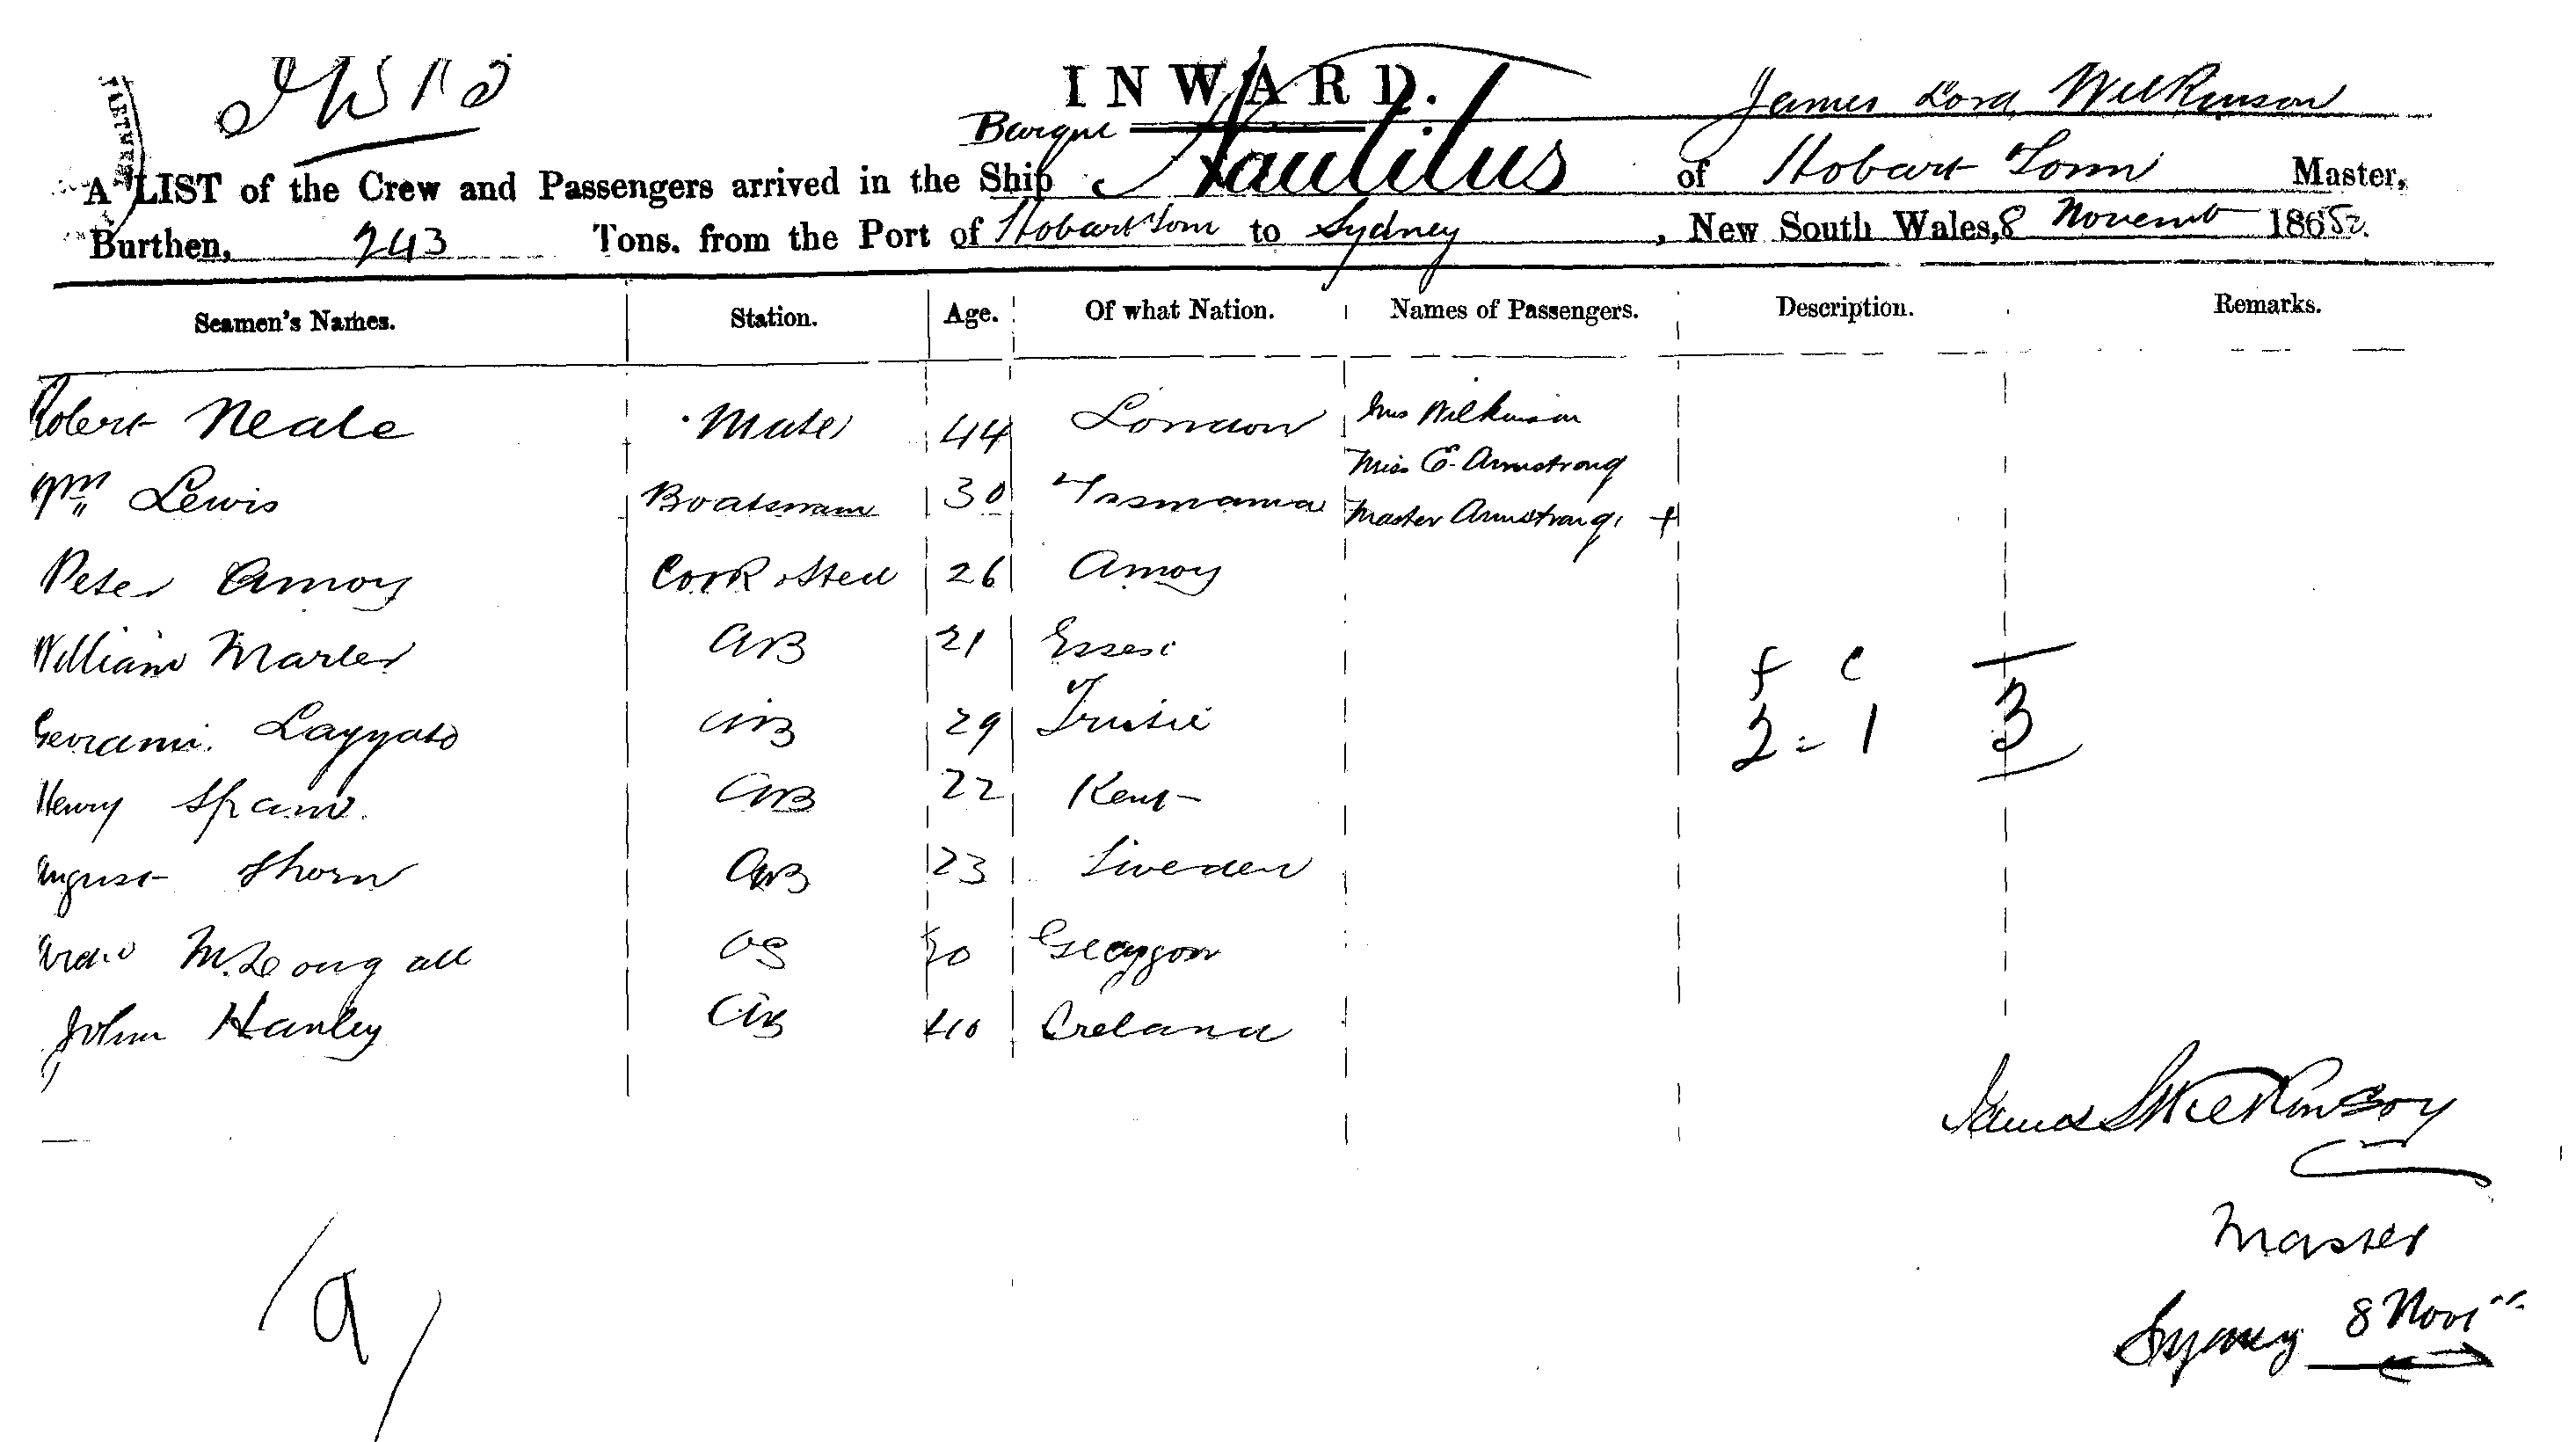 INWARD.
James Lord Wilkinson
Barque
A LIST of the Crew and Passengers arrived in the Ship Nautilus of Hobart Town Master,
Burthen, 243 Tons. from the Port of Hobart Town to Sydney, New South Wales, 8 Novemb 186
Seamen's Names. Station. Age. Of what Nation. Names of Passengers. Description. Remarks.
Robert Neale Mate 44 London Mrs Wilkinson
Miss E. Armstrong
Wm Lewis Boatswain 30 Tasmania Master Armstrong +
Peter Amoy Cook & Stew 26 Amoy
William Marler AB 21 Essex
AB 29
Henry AB 22 Kent
August Thorn AB 23 Sweden
OS Glasgow
John Hanley AB 40 Ireland
f c
2 = 1 3
James L Wilkinson
Master
Sydney 8 Novr
9